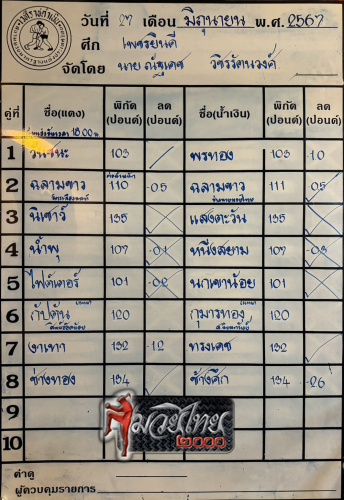 วันที่ 27 เดือน มิถุนายน พ.ศ. 2567
ศึก เพชรยินดี
จัดโดย นาย ณัฐเดช วชิรรัตนวงศ์
คู่ที่ ชื่อ(แดง) พิกัด (ปอนด์) ลด (ปอนด์) ชื่อ(น้ำเงิน) พิกัด (ปอนด์) ลด (ปอนด์)
18.00 น
1 103 พรทอง 103 -1.0
2 ฉลามขาว 110 -0.5 ฉลามขาว 111 -0.5
3 นิเชาว์ 135 แสงตะวัน 135
4 น้ำพุ 107 -0.1 หนึ่งสยาม 107 -0.3
5 ไฟต์เตอร์ 101 -0.2 นกเขาน้อย 101
6 กัปตัน 120 กุมารทอง 120
7 งาเทา 132 -1.2 ทรงเดช 132
8 ช้างทอง 134 ช้างศึก 134 -2.6
9
10
มวยไทย
2000
ค่าดู
ผู้ควบคุมรายการ